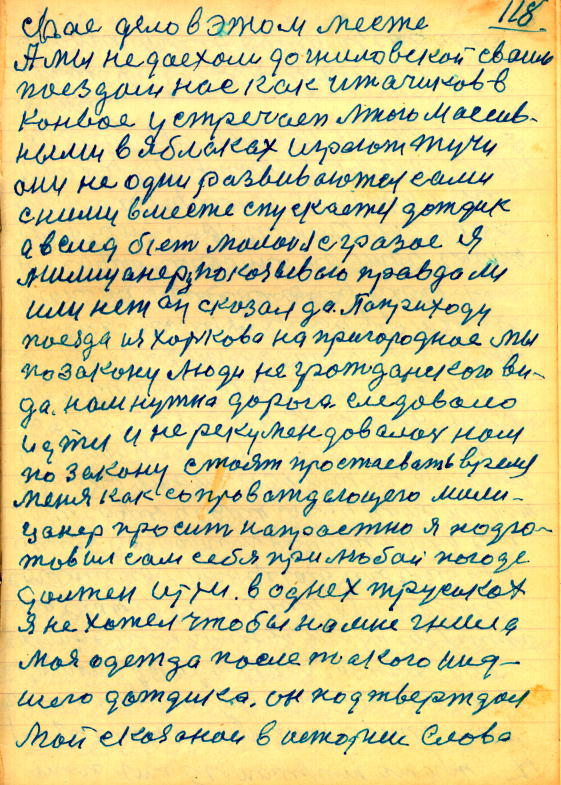 118
свае дело в этом месте
А мы не доехали до гниловской своим
поездом нас как ишачиков в
конвое устречает мною массив-
ными в яблаках играют тучи
они не одни развиваются сами
с ними вместе спускается дождик
а вслед бьет молоня с гразое я
милицанеру показываю правда ли
или нет ай сказал да. По приходу
поезда из харкова на пригородное мы
по закону люди не гражданского ви-
да. нам нужна дорога следовало
идти и не рекумендовалох нам
по закону стоят простаевать время
меня как сопровождающего мили-
цанер просит напрастно я подго-
товил сам себя при любой погоде
должен идти. в однех трусиках
Я не хател чтобы на мне гнила
моя одежда после такого иид-
шего дождика. он подтверждал
мои сказаной в истории слова